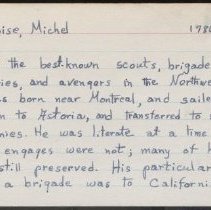 oise, Michel 178
the best known scouts, brigade
ies, and avengers in the Northwe
s born near Montreal, and saile
n to Astoria, and transferred to
nies. He was literate at a time
engages were not; many of h
still preserved. His particular
a brigade was to Californi